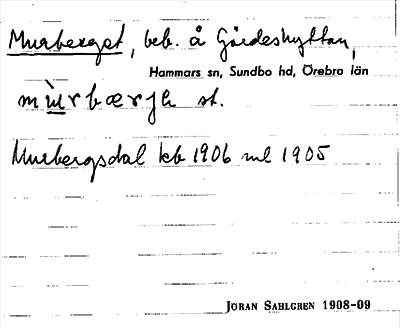 Murberget, beb. å Gårdeshyttan,
Hammars sn, Sundbo hd, Örebro län
mùrbærjh st.
Murbergsdal kb 1906 ml 1905
JÖRAN SAHLGREN 1908-09